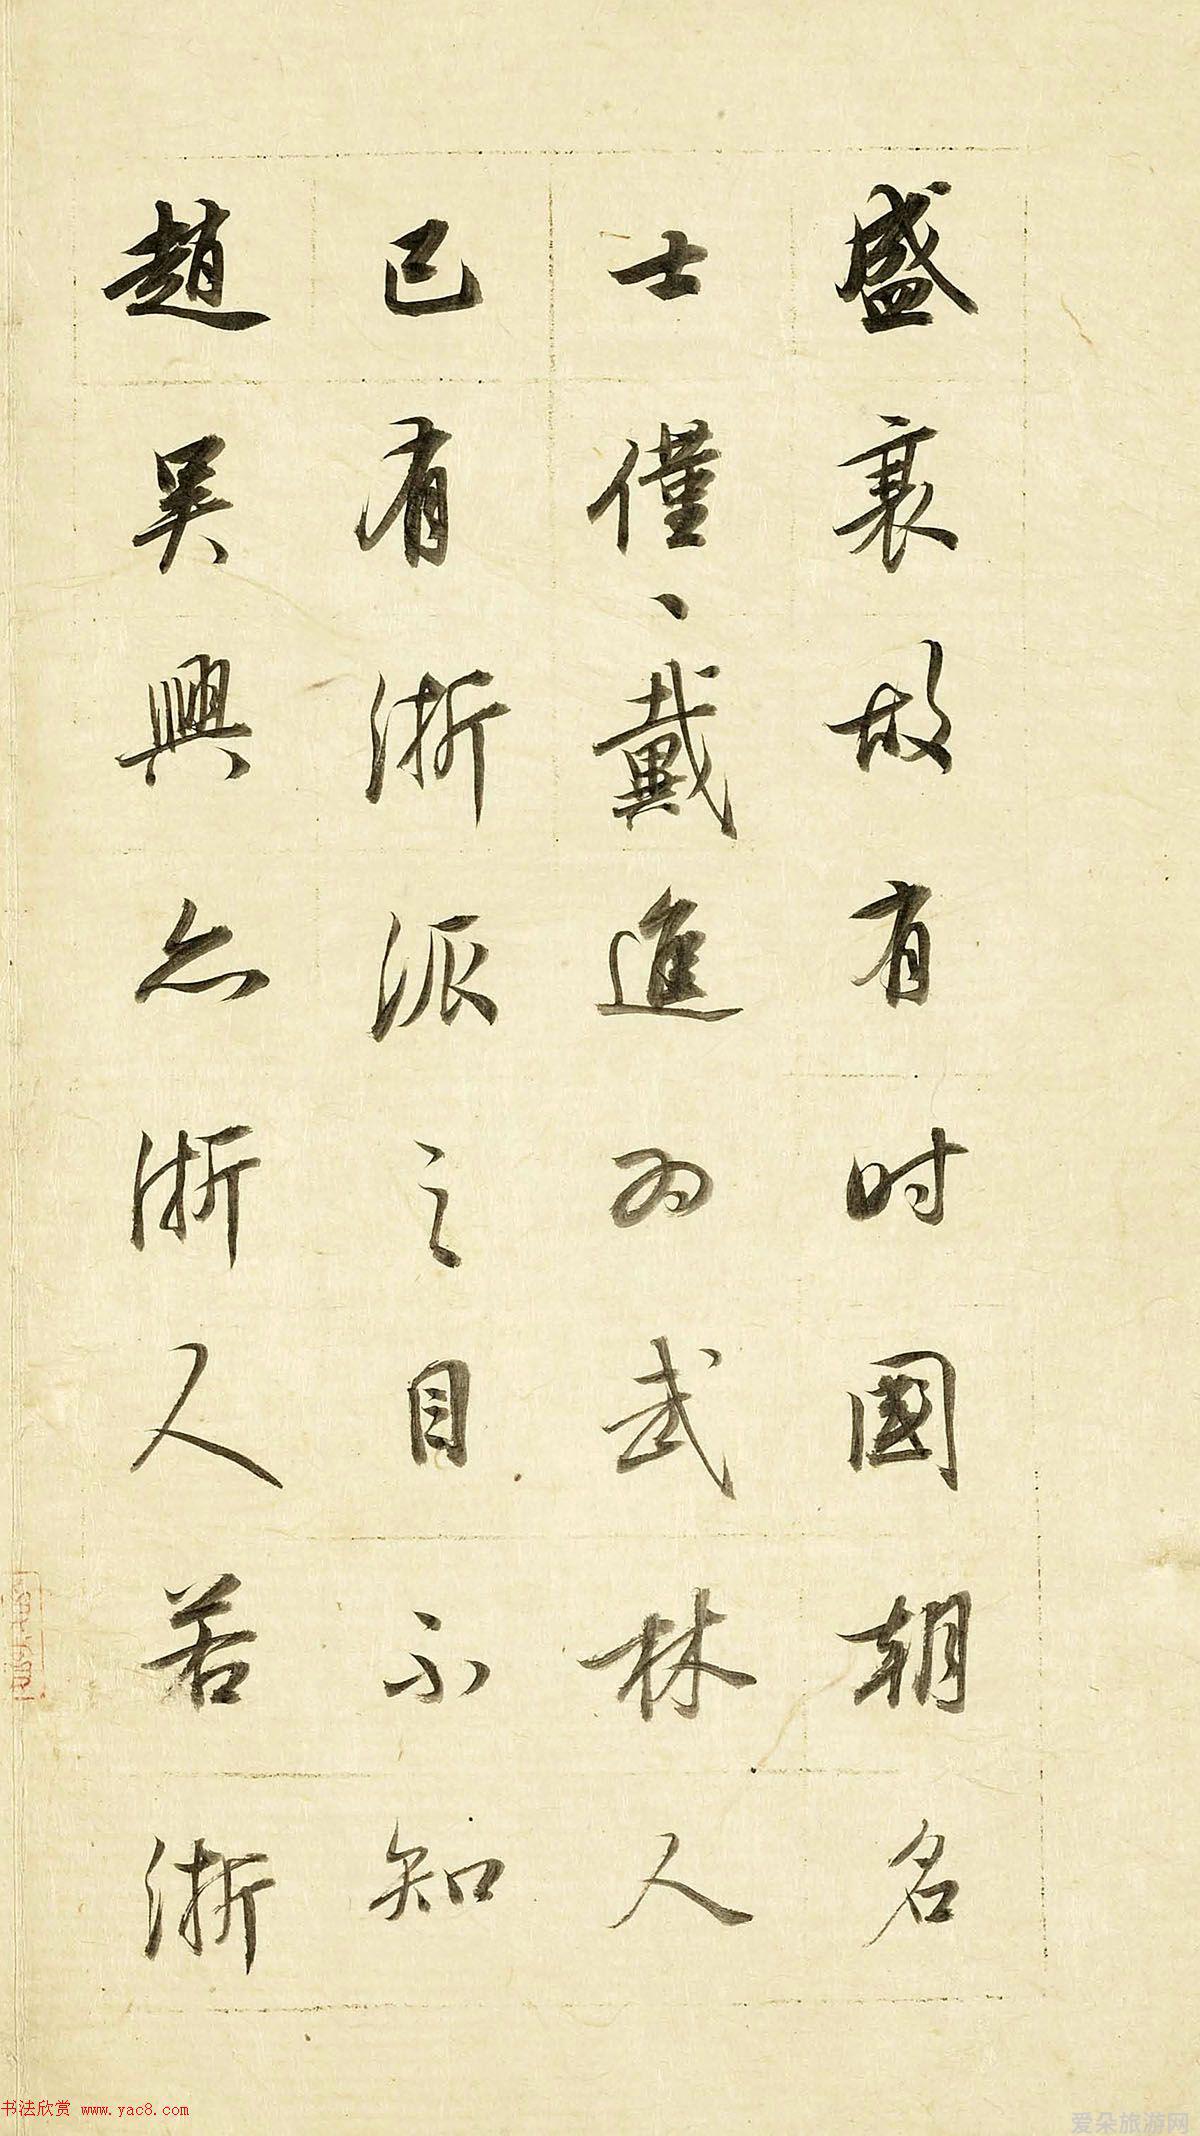 盛衰故有时國朝名
士僅、戴進为武林人
已有浙派之目不知
趙吴興亦浙人若浙
书法欣赏 www.yac8.com
爱朵旅游网